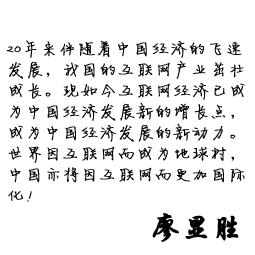 20年来伴随着中国经济的飞速
发展，我国的互联网产业茁壮
成长。现如今互联网经济已成
为中国经济发展新的增长点，
成为中国经济发展的新动力。
世界因互联网而成为地球村，
中国亦将因互联网而更加国际
化！
廖显胜